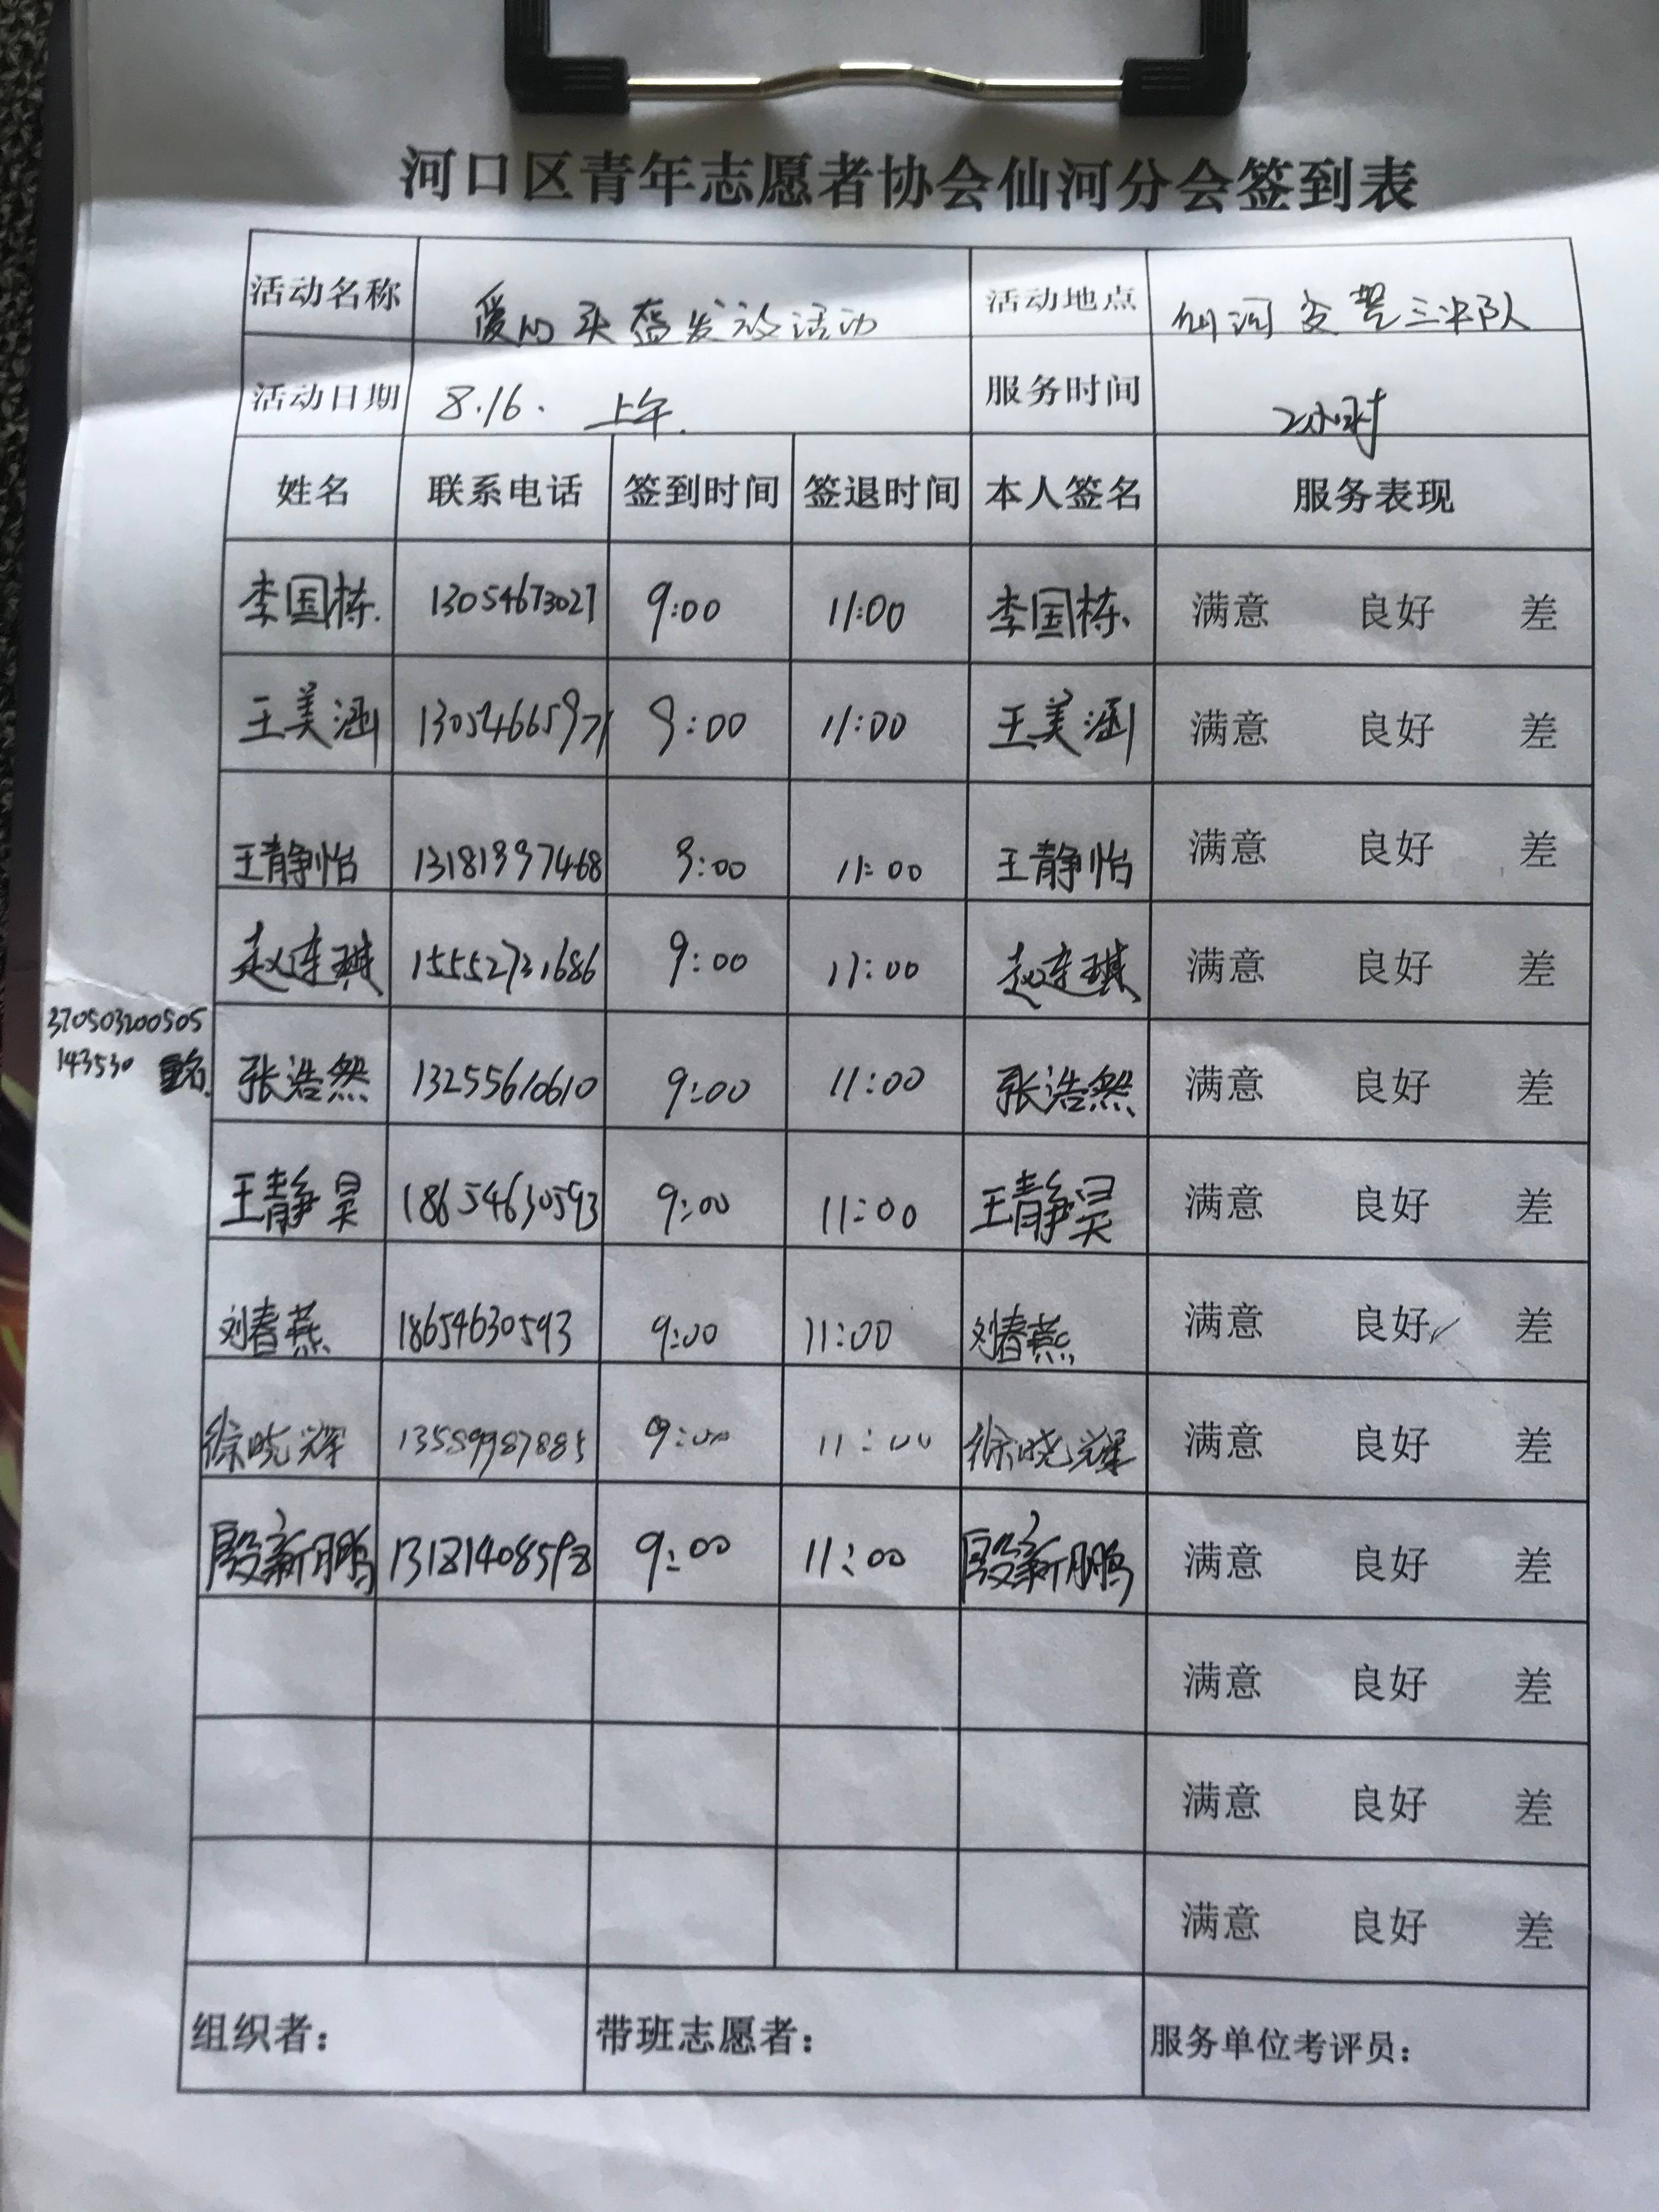 河口区青年志愿者协会仙河分会签到表
活动名称 爱心头盔发放活动 活动地点 仙河交警三中队
活动日期 8.16. 上午. 服务时间 2小时
姓名 联系电话 签到时间 签退时间 本人签名 服务表现
李国栋. 13054673027 9:00 11:00 李国栋. 满意 良好 差
王美涵 13054665971 9:00 11:00 王美涵 满意 良好 差
王静怡 13181997468 9:00 11:00 王静怡 满意 良好 差
赵连琪 15552731686 9:00 11:00 赵连琪 满意 良好 差
370503200505
143530 重名.
张浩然 13255610610 9:00 11:00 张浩然 满意 良好 差
王静昊 18654630593 9:00 11:00 王静昊 满意 良好 差
刘春燕 18654630593 9:00 11:00 刘春燕 满意 良好✓ 差
徐晓辉 13589987885 9:00 11:00 徐晓辉 满意 良好 差
殷新鹏 13181408598 9:00 11:00 殷新鹏 满意 良好 差
满意 良好 差
满意 良好 差
满意 良好 差
组织者： 带班志愿者： 服务单位考评员：